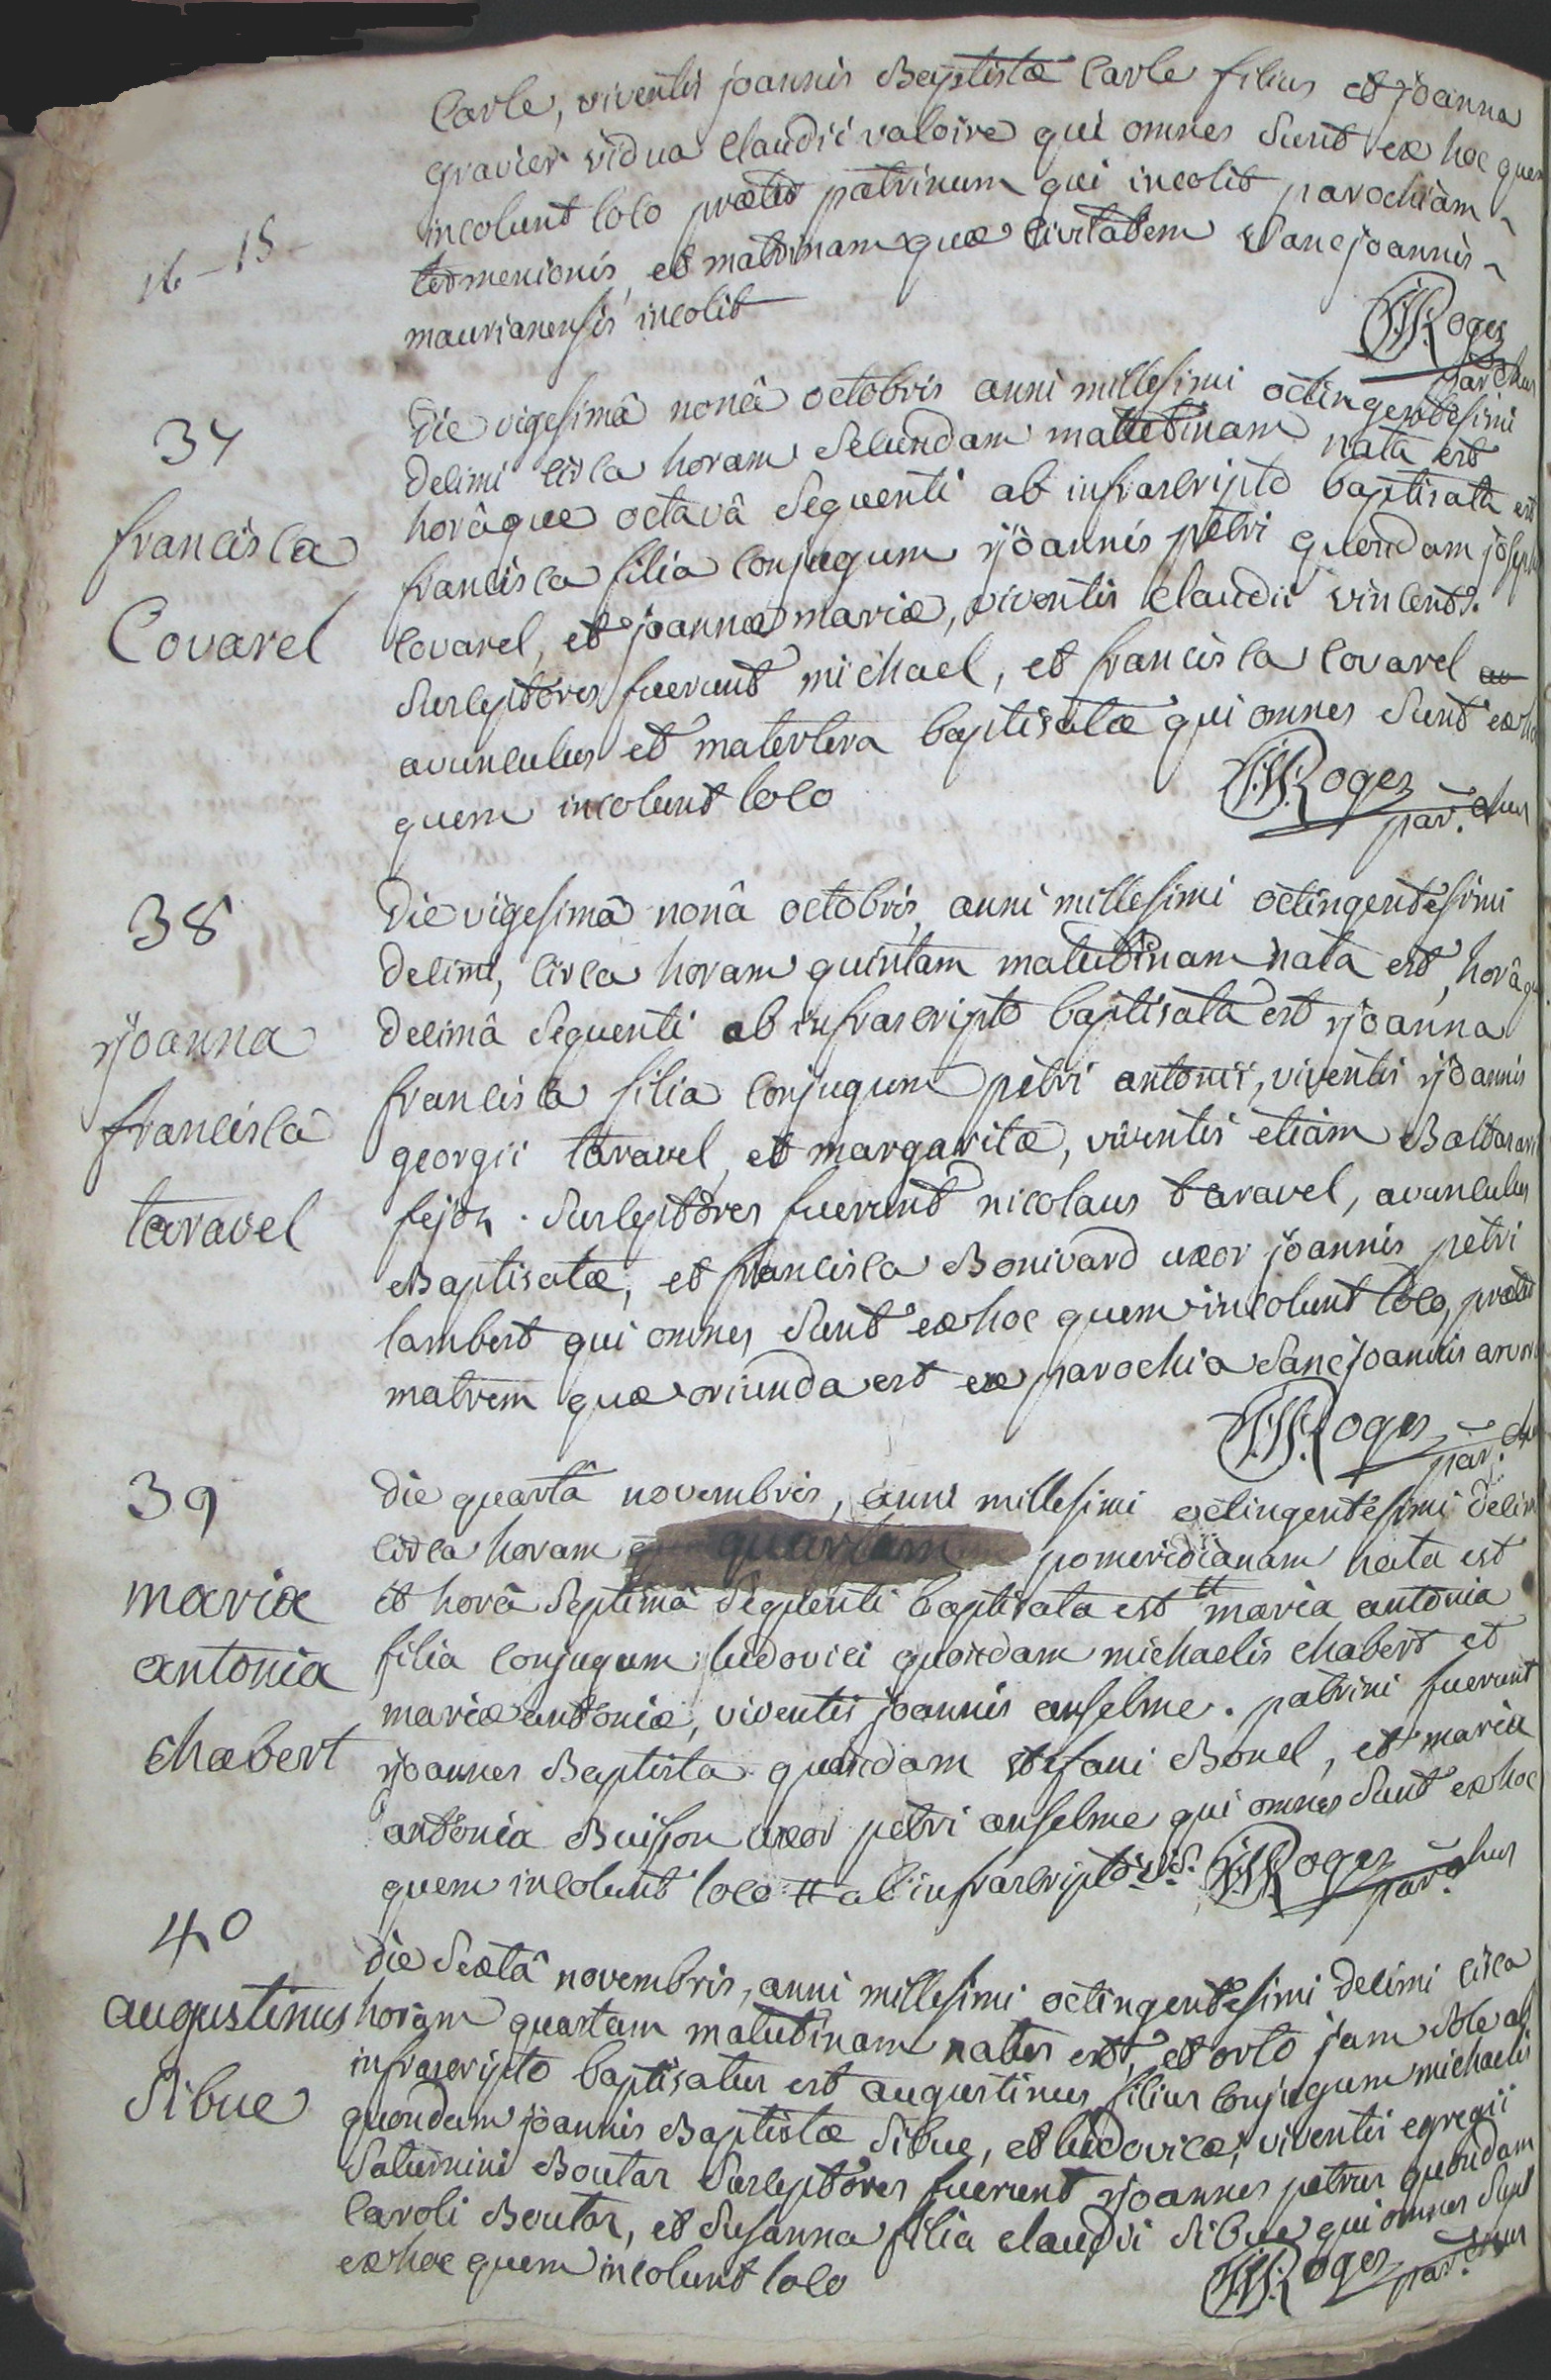 Carle, viventis joannis Baptistæ Carle filius et joanna
gravier vidua Claudii valoire qui omnes sunt ex hoc quem
incolunt loco præter patrinum qui incolit parochiam
termenionis, et matrinam quæ Civitatem Sancjoannis
maurianensis incolit
16 - 15 -
J.M. Roges
parochus
34
francisca
Covarel
Die vigesimâ nonâ octobris anni millesimi octingentesimi
decimi circa horam secundam matutinam nata est
horâque octavâ sequenti ab infrascripto baptisata est
francisca filia conjugum joannis petri quondam joseph
covarel, et joannæ mariæ, viventis claudii vincent.
Susceptores fuerunt michael, et francisca covarel
avunculus et matertera baptisatæ qui omnes sunt ex hoc
quem incolunt loco
J.M. Roges
par.chus
38
joanna
francisca
taravel
Die vigesimâ nonâ octobris, anni millesimi octingentesimi
decimi, circa horam quintam matutinam nata est, horâq
decimâ sequenti ab infrascripto baptisata est joanna
francisca filia conjugum petri antonii, viventis joannis
georgii taravel, et margaritæ, viventis etiam Baltasaris
fejoz. Susceptores fuerunt nicolaus taravel, avunculus
Baptisatæ, et francisca Bonivard uxor joannis petri
lambert qui omnes sunt ex hoc quem incolunt loco, præter
matrem quæ oriunda est ex parochia Sancjoannis arvor
J.M. Roges
par.chus
39
maria
antonia
chabert
die quartâ novembris, anni millesimi octingentesimi decimi
circa horam quartam pomeridianam nata est
et horâ septimâ sequenti baptisata est # maria antonia
filia conjugum ludovici quondam michaelis chabert et
mariæ antoniæ, viventis joannis anselme. patrini fuerunt
joannes Baptista quondam stefani Bonel, et maria
antonia Buisson uxor petri anselme qui omnes sunt ex hoc
quem incolunt loco # ab infrascripto J.M. Roges par.chus
40
augustinus
Sibue
die sextâ novembris, anni millesimi octingentesimi decimi circa
horam quartam matutinam natus est, et orto jam sole ab
infrascripto baptisatus est augustinus filius conjugum michaelis
quondam joannis Baptistæ Sibue, et ludovicæ, viventis egregii
Saturnini Boutaz Susceptores fuerunt joannes petrus quondam
Caroli Boutaz, et Susanna filia claudii Sibue qui omnes sunt
ex hoc quem incolunt loco
J.M. Roges par.chus